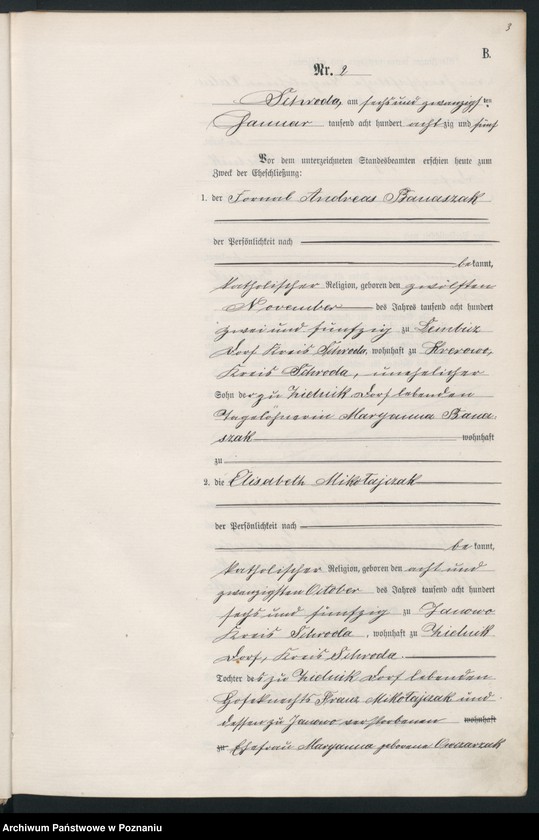 3
B.
Nr. 2
Schroda, am sechs und zwanzigsten
Januar tausend acht hundert achtzig und fünf
Vor dem unterzeichneten Standesbeamten erschien heute zum
Zweck der Eheschließung:
1. der Fornal Andreas Banaszak
der Persönlichkeit nach
bekannt,
katholischer Religion, geboren den zwölften
November des Jahres tausend acht hundert
zwei und fünfzig zu
Dorf Kreis Schroda, wohnhaft zu Krerowo,
Kreis Schroda, unehelicher
Sohn der zu Zielnik Dorf lebenden
Tagelöhnerin Maryanna Bana
szak wohnhaft
zu
2. die Elisabeth Mikołajczak
der Persönlichkeit nach
bekannt,
katholischer Religion, geboren den acht und
zwanzigsten October des Jahres tausend acht hundert
sechs und fünfzig zu Janowo
Kreis Schroda, wohnhaft zu Zielnik
Dorf, Kreis Schroda.
Tochter des zu Zielnik Dorf lebenden
Hofeknechts Franz Mikołajczak und
dessen zu Janowo verstorbenen wohnhaft
zu Ehefrau Maryanna geborene
Archiwum Państwowe w Poznaniu